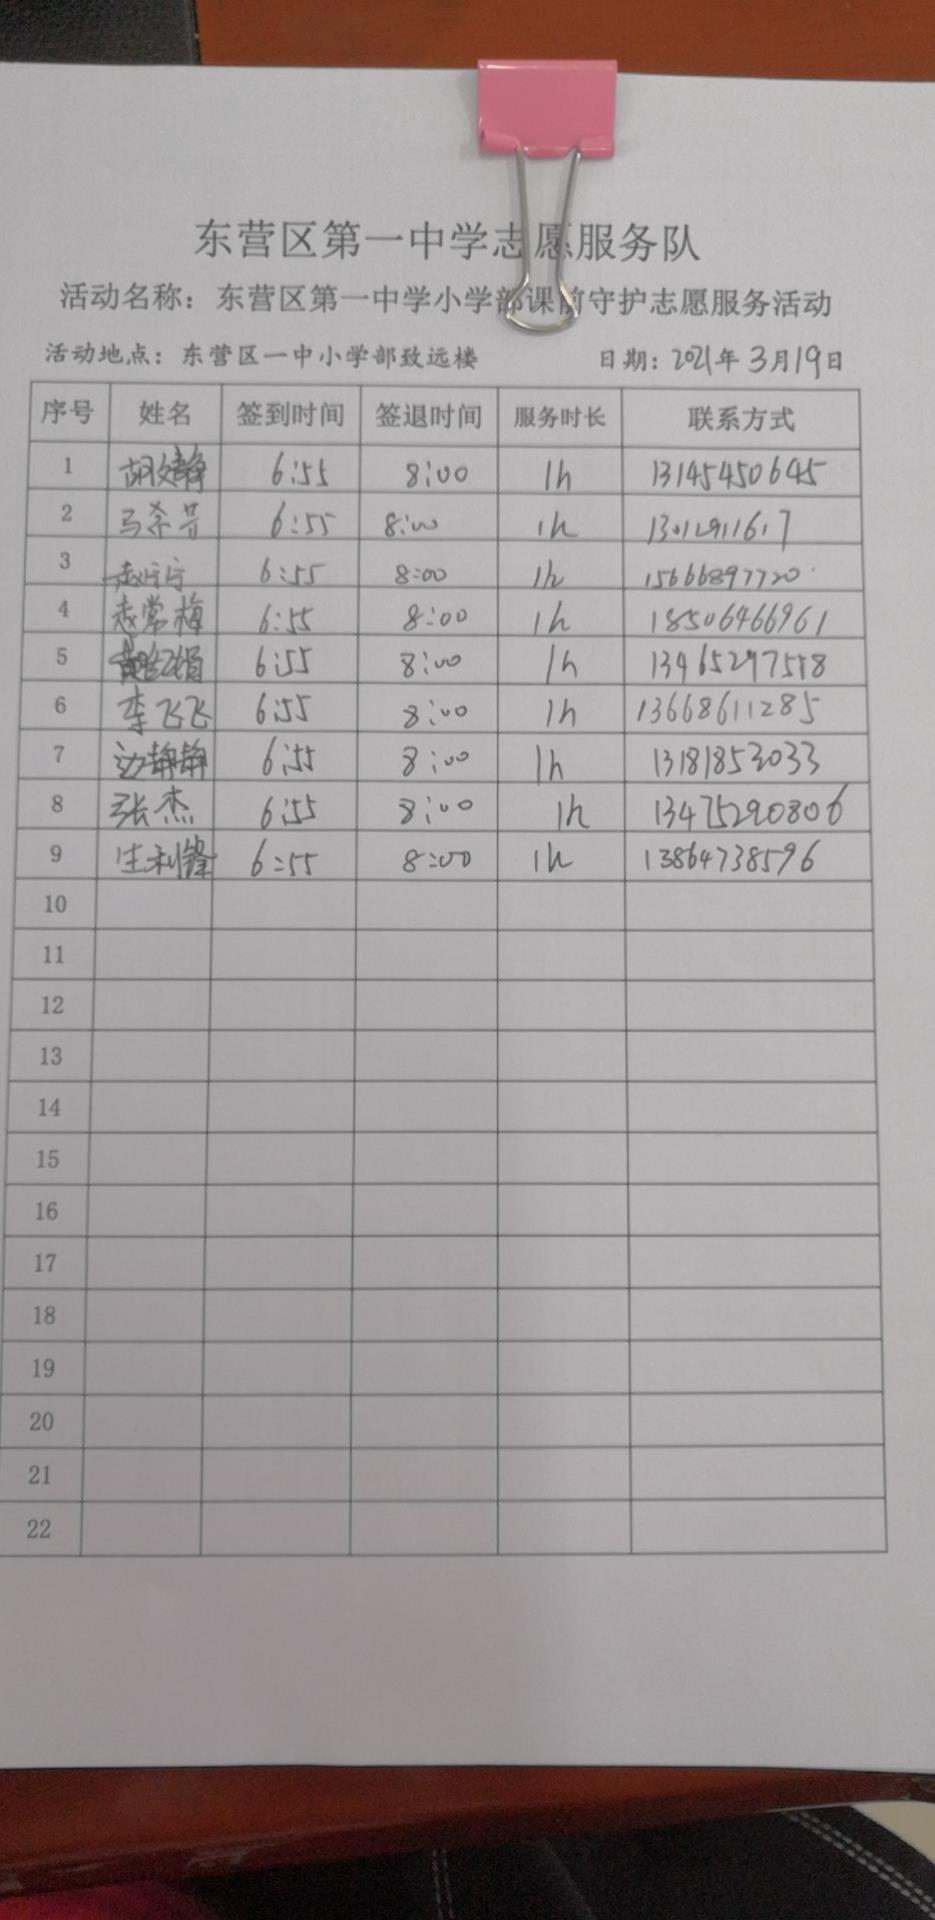 东营区第一中学志愿服务队
活动名称：东营区第一中学小学部课前守护志愿服务活动
活动地点：东营区一中小学部致远楼 日期：2021年3月19日
序号 姓名 签到时间 签退时间 服务时长 联系方式
1 胡文静 6:55 8:00 1h 13145450645
2 6:55 8:00 1h 13012911617
3 赵宁宁 6:55 8:00 1h 15666897720
4 赵常梅 6:55 8:00 1h 18506466961
5 6:55 8:00 1h
6 李飞飞 6:55 8:00 1h 13668611285
7 边静静 6:55 8:00 1h 13181853033
8 张杰 6:55 8:00 1h 13475290806
9 生利锋 6:55 8:00 1h 13864738596
10
11
12
13
14
15
16
17
18
19
20
21
22